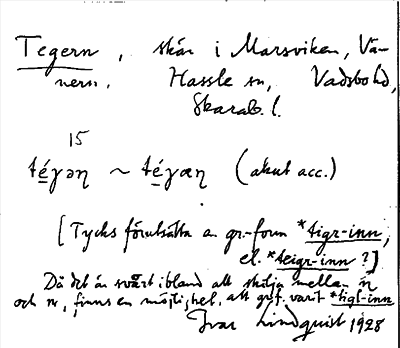 Tegern, skär i Marsviken, Vä-
nern. Hassle sn, Vadsbo hd,
Skarab. l.
15
té̱γəη ~ té̱γαη (akut acc.)
[Tycks förutsätta en gr.-form *tigr-inn,
el. *teigr-inn ?]
Då det är svårt ibland att skilja mellan n̄
och n, finns en möjlighet, att grf. varit *tigl-inn
Ivar Lindquist 1928